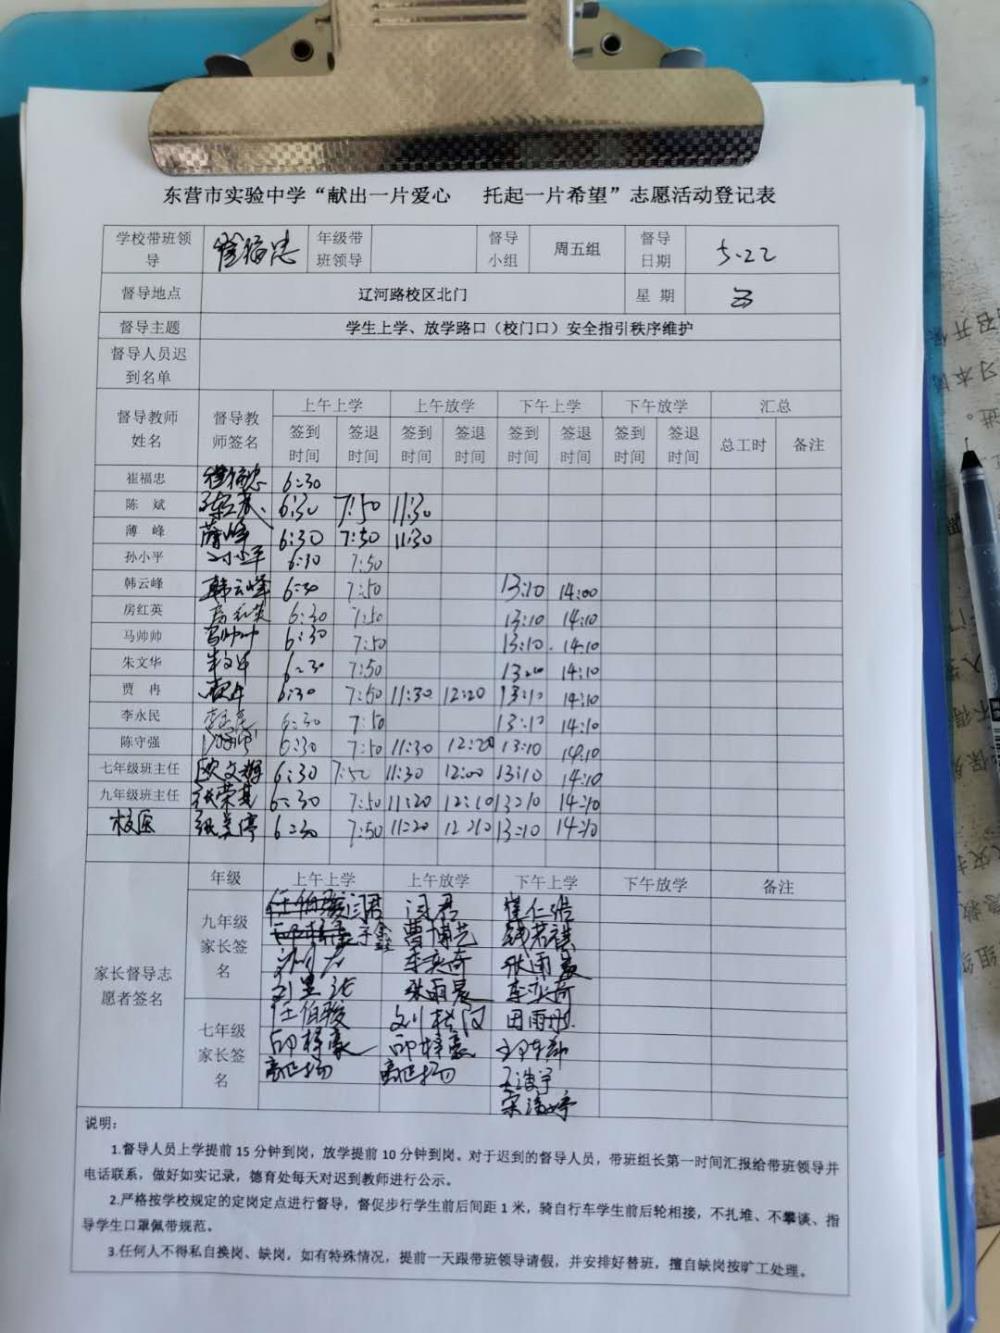 东营市实验中学“献出一片爱心 托起一片希望”志愿活动登记表
学校带班领导 崔福忠 年级带班领导 督导小组 周五组 督导日期 5.22
督导地点 辽河路校区北门 星 期 五
督导主题 学生上学、放学路口（校门口）安全指引秩序维护
督导人员迟到名单
督导教师姓名 督导教师签名 上午上学 上午放学 下午上学 下午放学 汇总
签到时间 签退时间 签到时间 签退时间 签到时间 签退时间 签到时间 签退时间 总工时 备注
崔福忠 崔福忠 6:30
陈 斌 6:30 7:50 11:30
薄 峰 薄峰 6:30 7:50 11:30
孙小平 孙小平 6:30 7:50
韩云峰 韩云峰 6:30 7:50 13:10 14:00
房红英 房红英 6:30 7:50 13:10 14:10
马帅帅 马帅帅 6:30 7:50 13:10 14:10
朱文华 朱文华 6:30 7:50 14:10
贾 冉 贾冉 6:30 7:50 11:30 12:20 13:10 14:10
李永民 6:30 7:50 13:10 14:10
陈守强 6:30 7:50 11:30 12:20 13:10 14:10
七年级班主任 6:30 7:50 11:30 12:00 13:10 14:10
九年级班主任 6:30 7:50 11:20 12:10 13:10 14:10
校医 6:30 7:50 11:20 12:10 13:10 14:10
家长督导志愿者签名 年级 上午上学 上午放学 下午上学 下午放学 备注
九年级家长签名
任伯骏 闫君 闫君 崔仁浩
曹博艺
李奕奇 张雨晨
张雨晨 李奕奇
七年级家长签名
任伯骏 田雨彤
邱梓豪 邱梓豪
高一扬 高一扬
说明：
1.督导人员上学提前 15 分钟到岗，放学提前 10 分钟到岗。对于迟到的督导人员，带班组长第一时间汇报给带班领导并
电话联系，做好如实记录，德育处每天对迟到教师进行公示。
2.严格按学校规定的定岗定点进行督导，督促步行学生前后间距 1 米，骑自行车学生前后轮相接，不扎堆、不攀谈、指
导学生口罩佩带规范。
3.任何人不得私自换岗、缺岗，如有特殊情况，提前一天跟带班领导请假，并安排好替班，擅自缺岗按旷工处理。